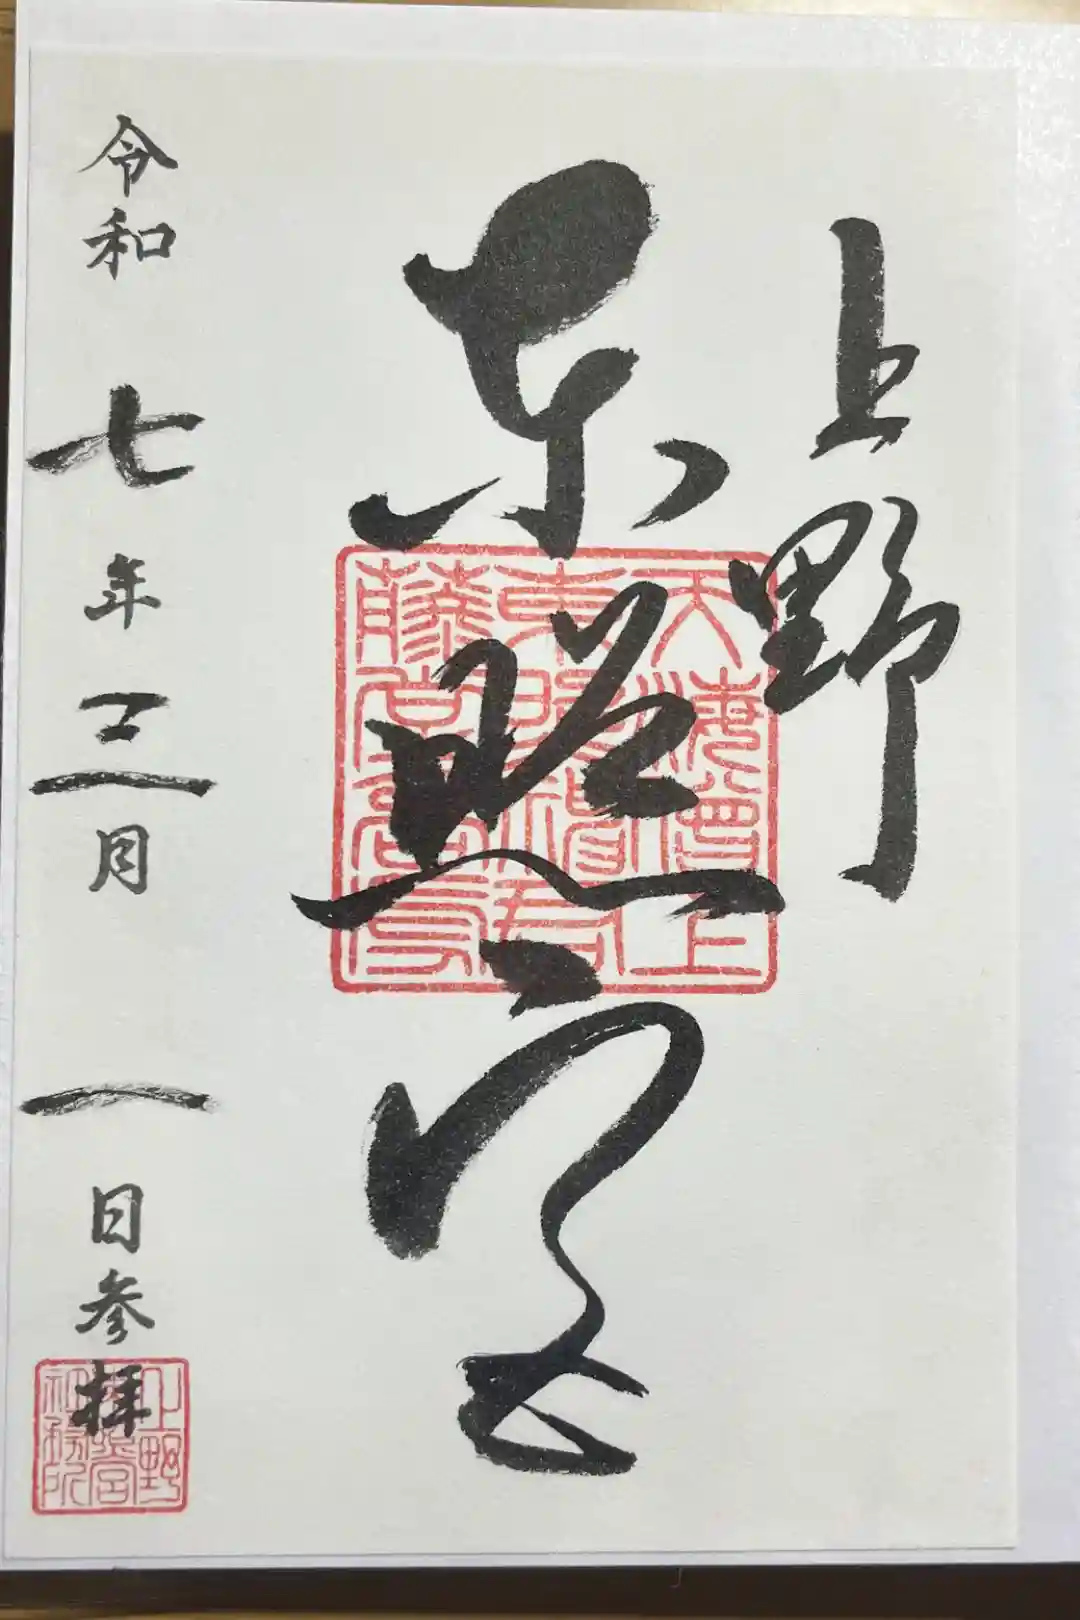 上野
東照宮
天海僧正
東照神君
藤堂高虎
令和七年三月一日参拝
上野
東照宮
社務所